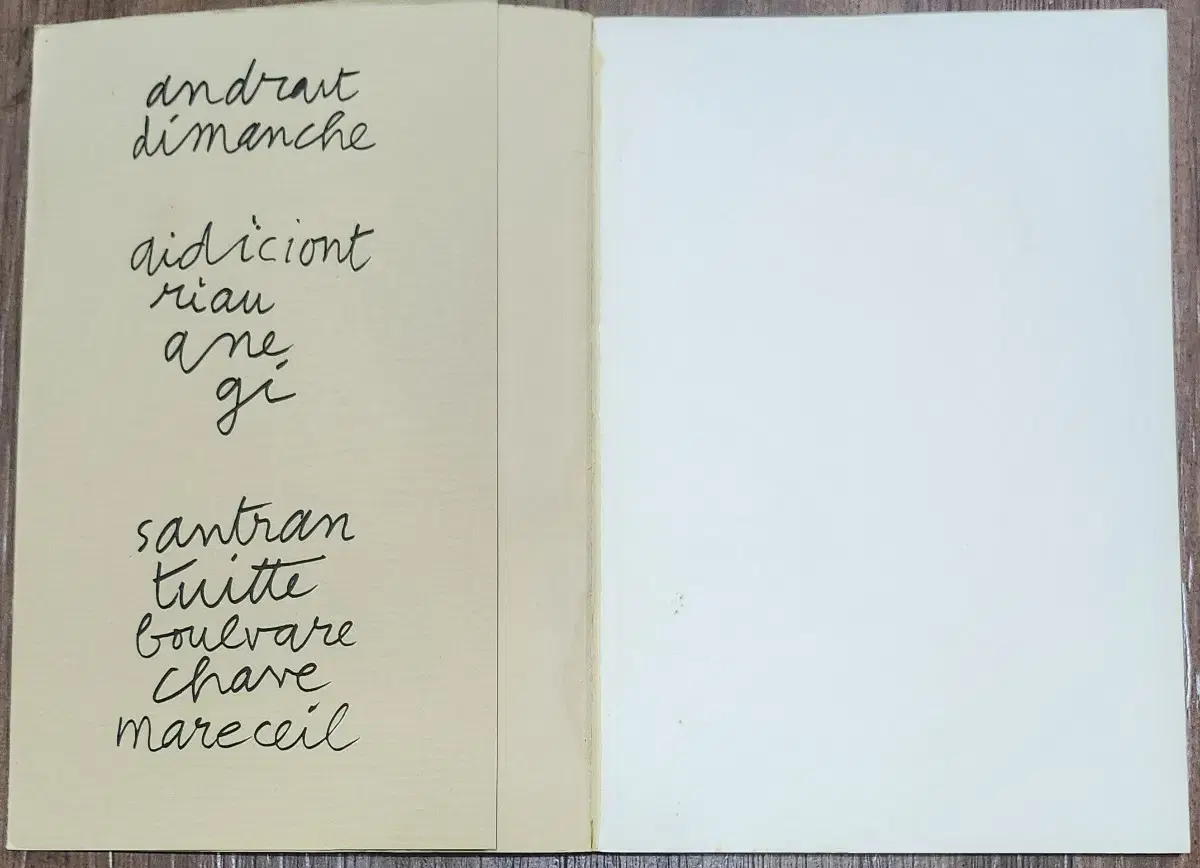 andraut
dimanche
aidiciont
riau
ane
gi
santran
tuitte
boulvare
chave
mareceil